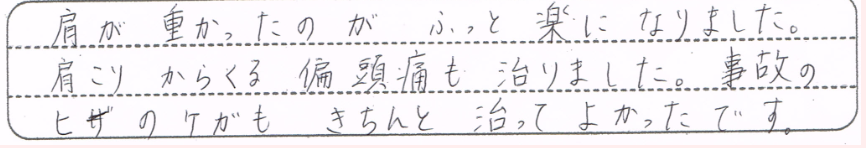 肩が重かったのがふっと楽になりました。
肩こりからくる偏頭痛も治りました。事故の
ヒザのケガもきちんと治ってよかったです。